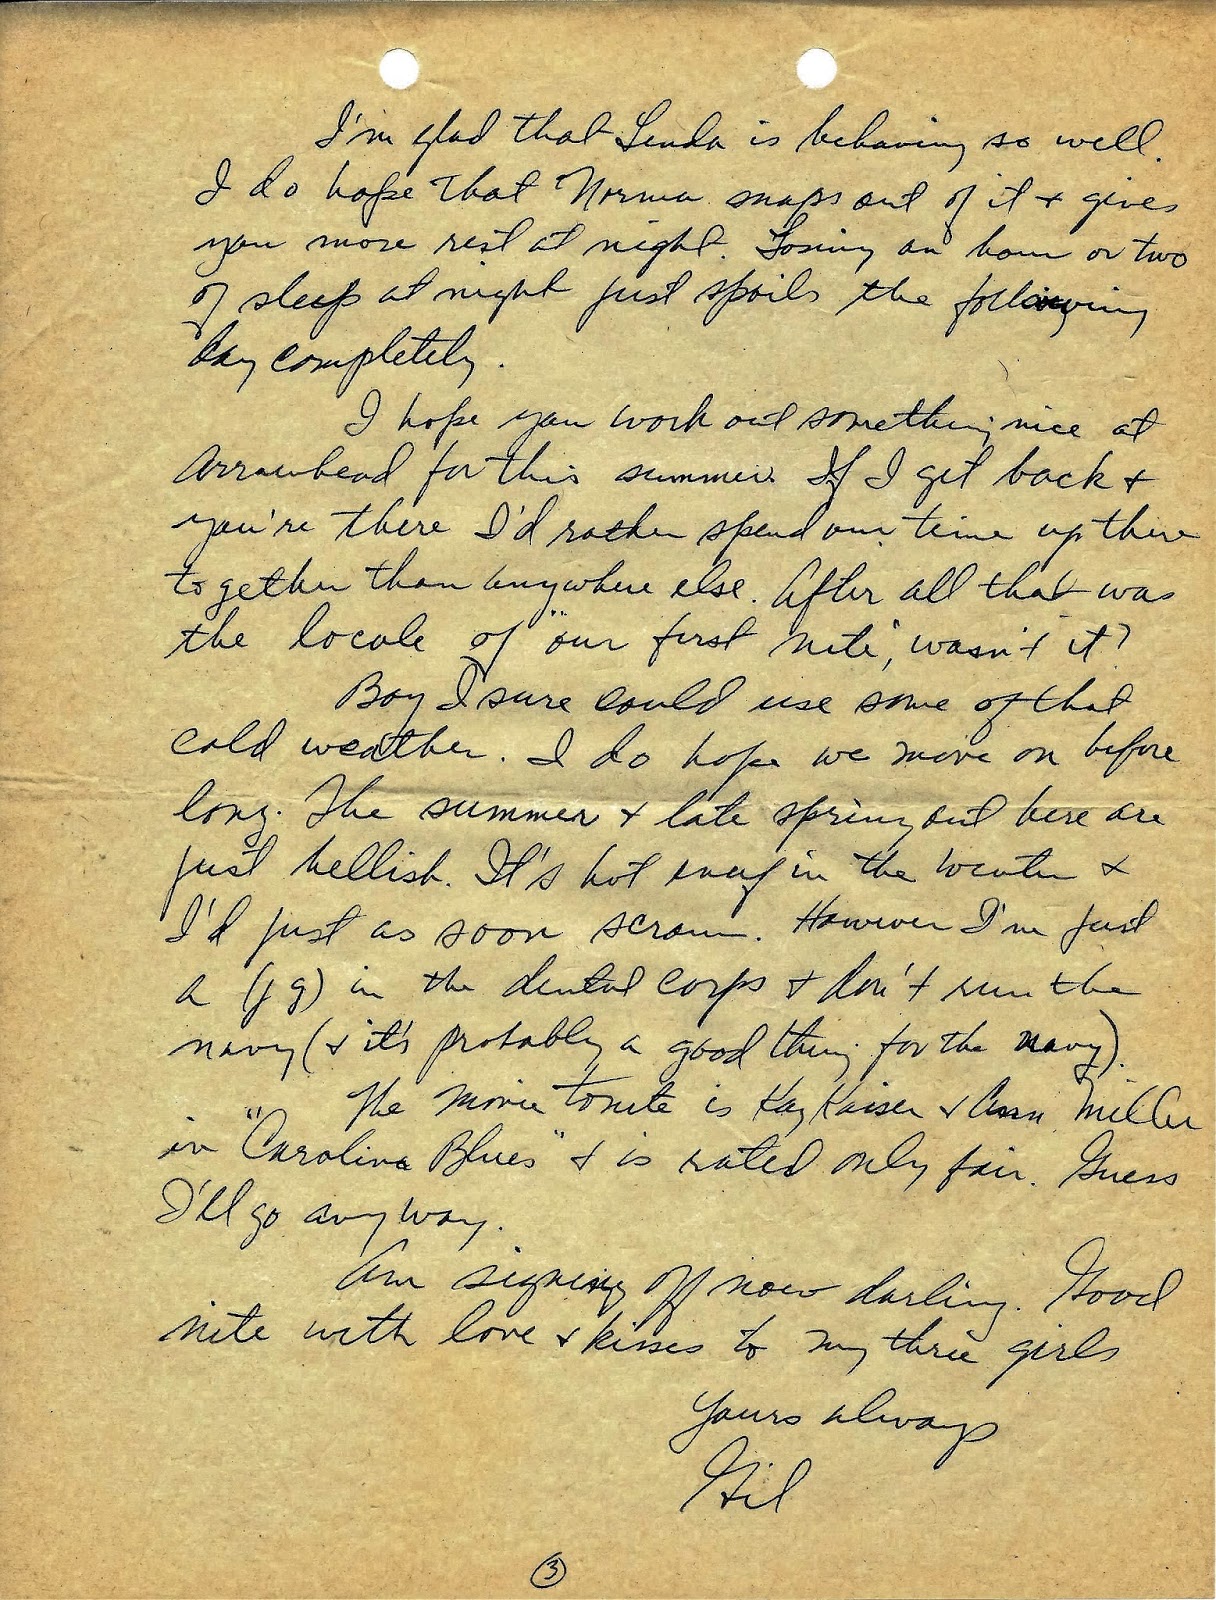 I'm glad that Linda is behaving so well.
I do hope that Norma snaps out of it & gives
you more rest at night. Losing an hour or two
of sleep at night just spoils the following
day completely.
I hope you work out something nice at
Arrowhead for this summer. If I get back &
you're there I'd rather spend our time up there
together than anywhere else. After all that was
the locale of "our first nite", wasn't it?
Boy I sure could use some of that
cold weather. I do hope we move on before
long. The summer & late spring out here are
just hellish. It's hot enuf in the winter &
I'd just as soon scram. However I'm just
a (jg) in the dental corps & don't run the
navy (& it's probably a good thing for the navy).
The movie tonite is Kay Kaiser & Ann Miller
in "Carolina Blues" & is rated only fair. Guess
I'll go anyway.
Am signing off now darling. Good
nite with love & kisses to my three girls
Yours always
Gil
3